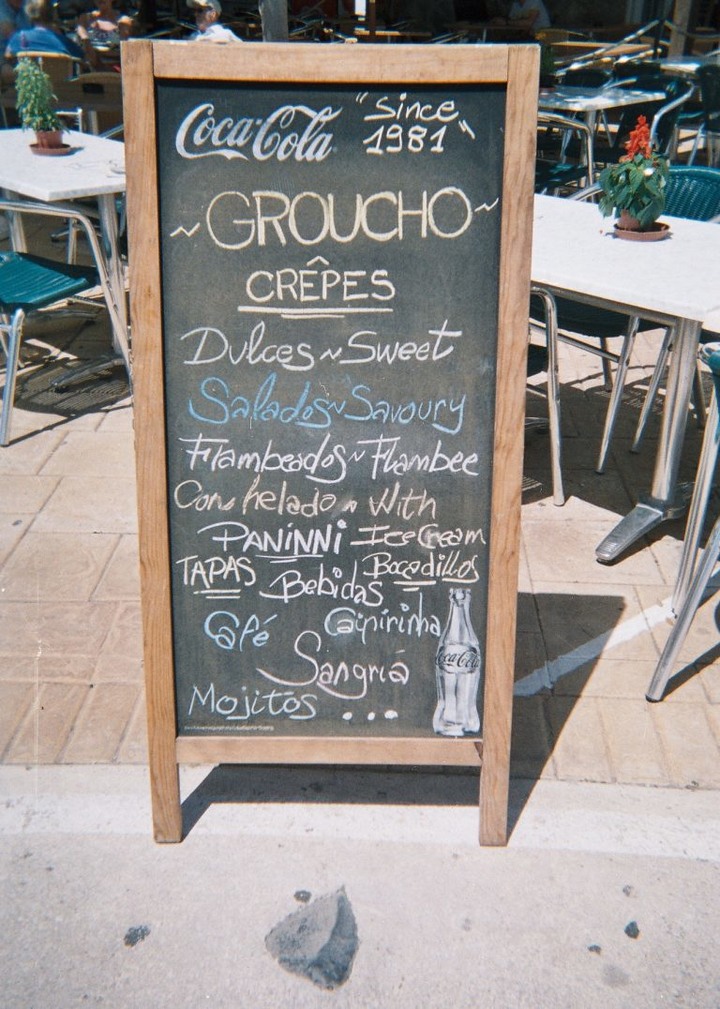 Coca-Cola "Since
1981"
~GROUCHO~
CRÊPES
Dulces ~ Sweet
Salados ~ Savoury
Flambeados ~ Flambee
Con helado ~ With
PANÍNNI Ice Cream
TAPAS Bebidas Bocadillos
Café Caipirinha
Sangriá
Coca-Cola
Mojitos ...